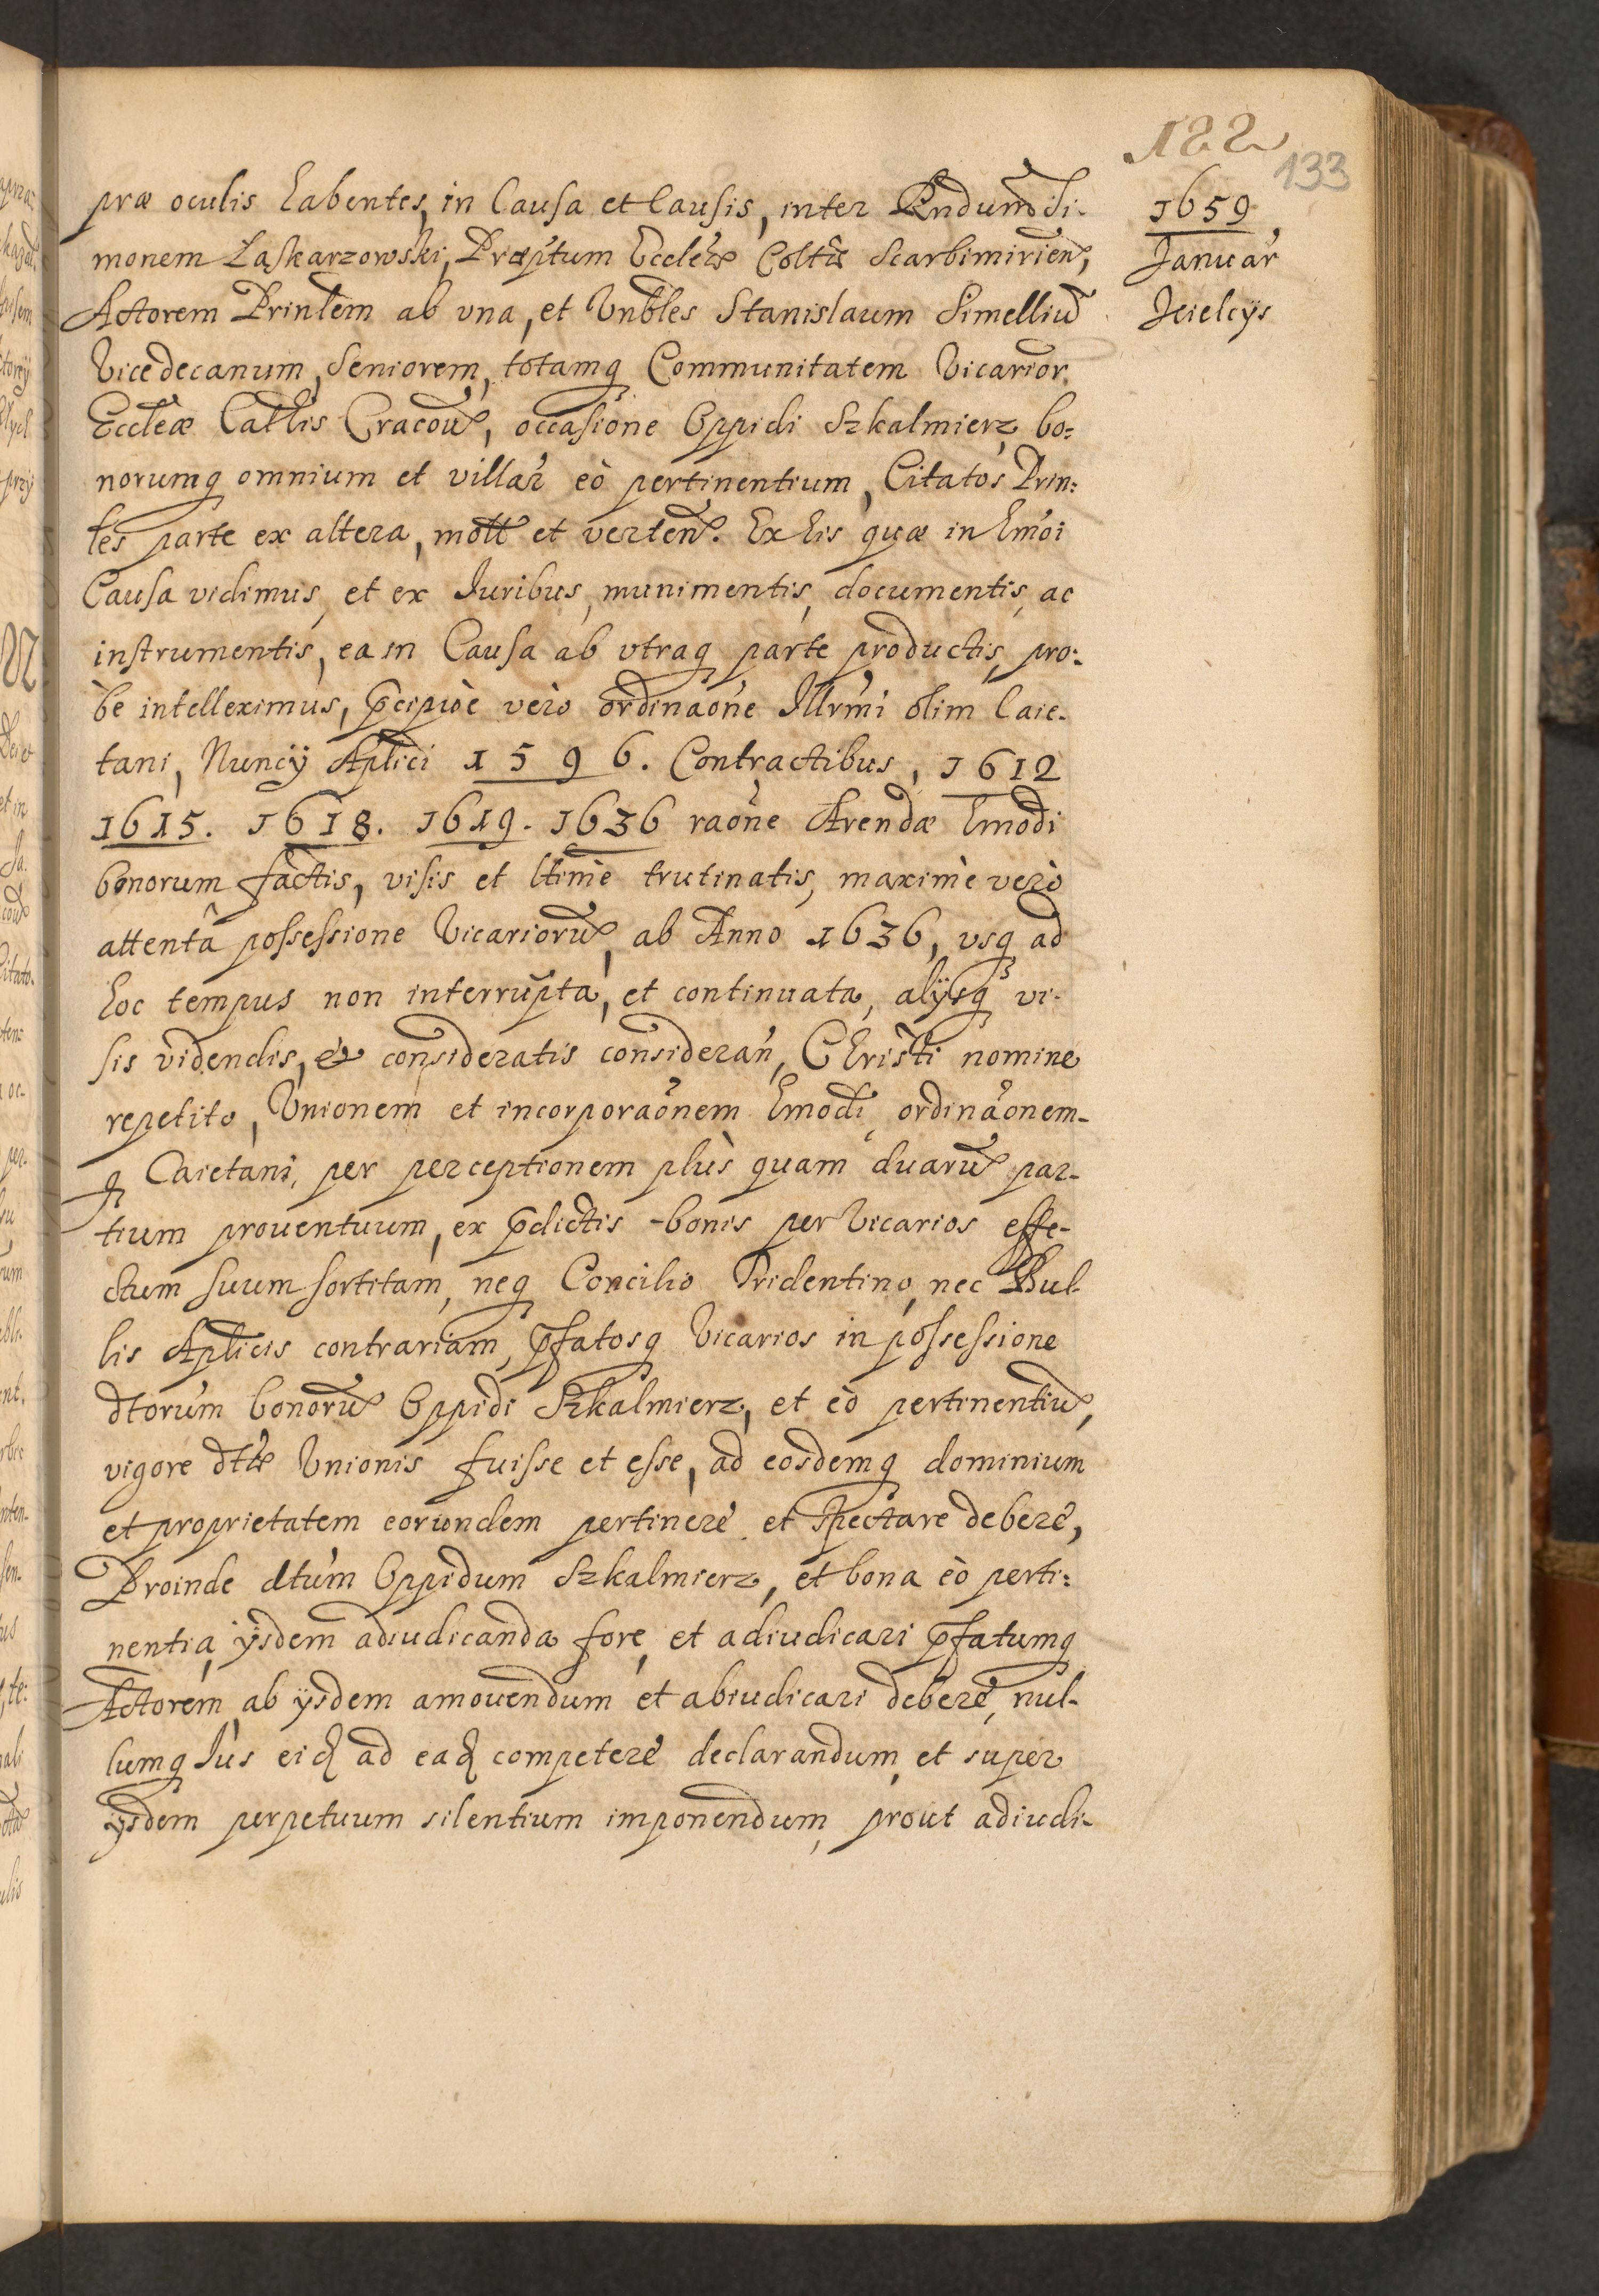 122
133
1659
Januar
Jeielcÿs
præ oculis habentes, in Causa et Causis, inter Rndum Si-
monem Laskarzowski, Præptum Eccleæ Coltæ Scarbimirien,
Actorem Prinlem ab vna, et Vnbles Stanislaum Simelliu
Vicedecanum, Seniorem, totamq Communitatem Vicarior
Eccleæ Cathlis Cracou, occasione Oppidi Szkalmierz bo:
norumq omnium et villar eò pertinentium, Citatos Prin:
les parte ex altera, mott et verten. Ex his quæ in hmoi
Causa vidimus, et ex Iuribus, munimentis, documentis, ac
instrumentis, ea in Causa ab vtraq parte productis, pro:
be intelleximus, pcipuè verò ordinaone Illrmi olim Caie-
tani, Nuncÿ Aplici 1596. Contractibus, 1612
1615. 1618. 1619. 1636 raone Arendæ hmodi
bonorum factis, visis et ltime trutinatis, maximè verò
attentâ possessione Vicarioru, ab Anno 1636, vsq ad
hoc tempus non interrupta, et continuata, alÿsq vi-
sis videndis, et consideratis consideran, Christi nomine
repetito, Vnionem et incorporaonem hmodi, ordinaonem-
q Caietani, per perceptionem plùs quam duaru par-
tium prouentuum, ex pdictis bonis per Vicarios effe-
ctum suum sortitam, neq Concilio Tridentino, nec Bul-
lis Aplicis contrariam, pfatosq Vicarios in possessione
dtorum bonoru Oppidi Szkalmierz, et eò pertinentiu,
vigore dtæ Vnionis fuisse et esse, ad eosdemq dominium
et proprietatem eorundem pertinere et spectare debere,
Proinde dtum Oppidum Szkalmierz, et bona eò perti:
nentia, ÿsdem adiudicanda fore, et adiudicari pfatumq
Actorem ab ÿsdem amouendum et abiudicari debere, nul-
lumq Ius eid ad ead competere declarandum, et super
ÿsdem perpetuum silentium imponendum, prout adiudi-